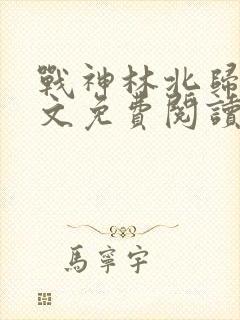 戰神林北歸
文免費閱讀
馬寧宇